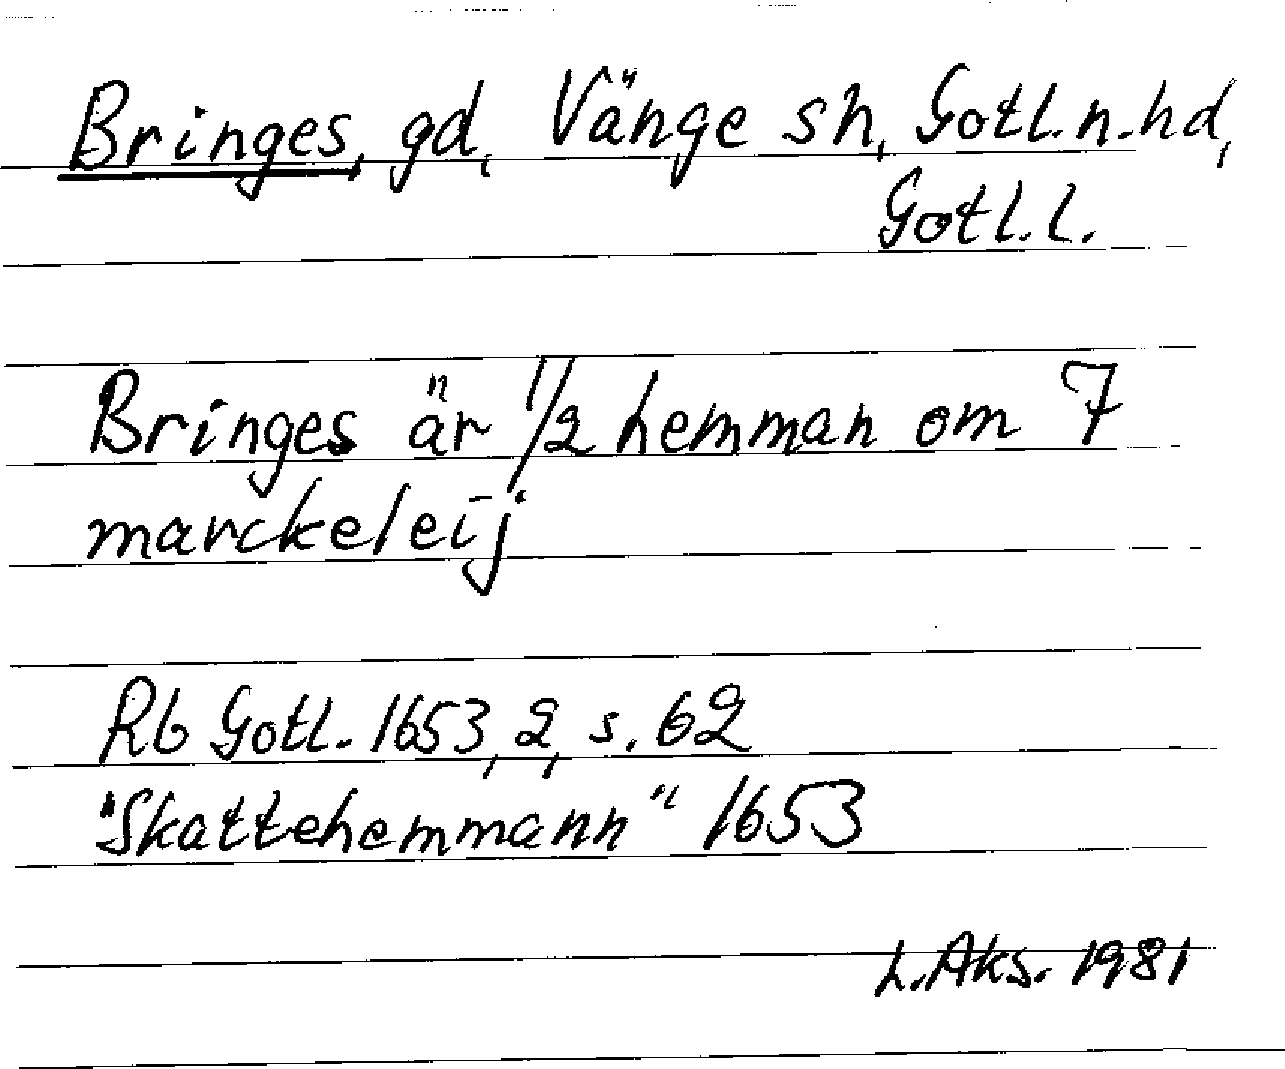 Bringes, gd, Vänge sn, Gotl.n.hd,
Gotl.l.
Bringes är 1/2 hemman om 7
marckeleij
Rb Gotl. 1653, 2, s. 62
"Skattehemmann" 1653
L.Aks. 1981